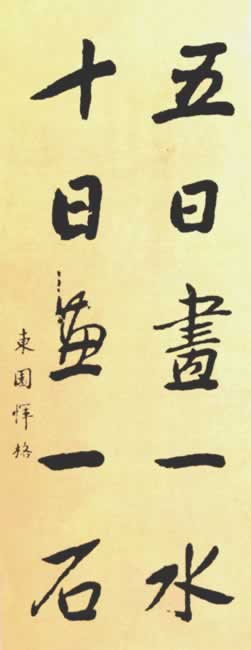 五日畫一水
十日畫一石
東園惲格